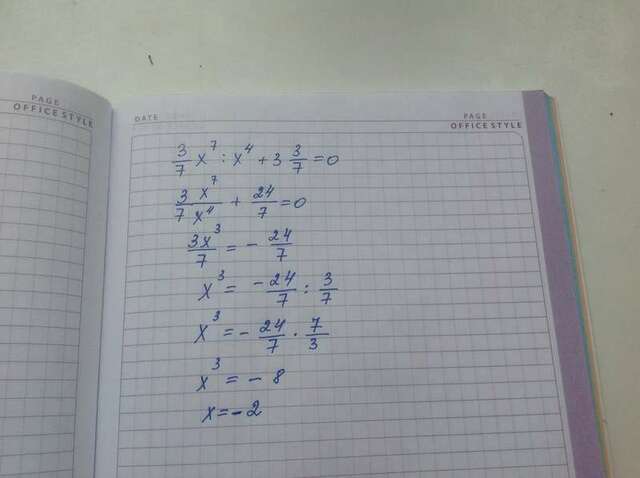 PAGE
OFFICE STYLE
DATE
PAGE
OFFICE STYLE
3/7 x^7 : x^4 + 3 3/7 = 0
3/7 x^7/x^4 + 24/7 = 0
3x^3/7 = - 24/7
x^3 = - 24/7 : 3/7
x^3 = - 24/7 · 7/3
x^3 = - 8
x = - 2